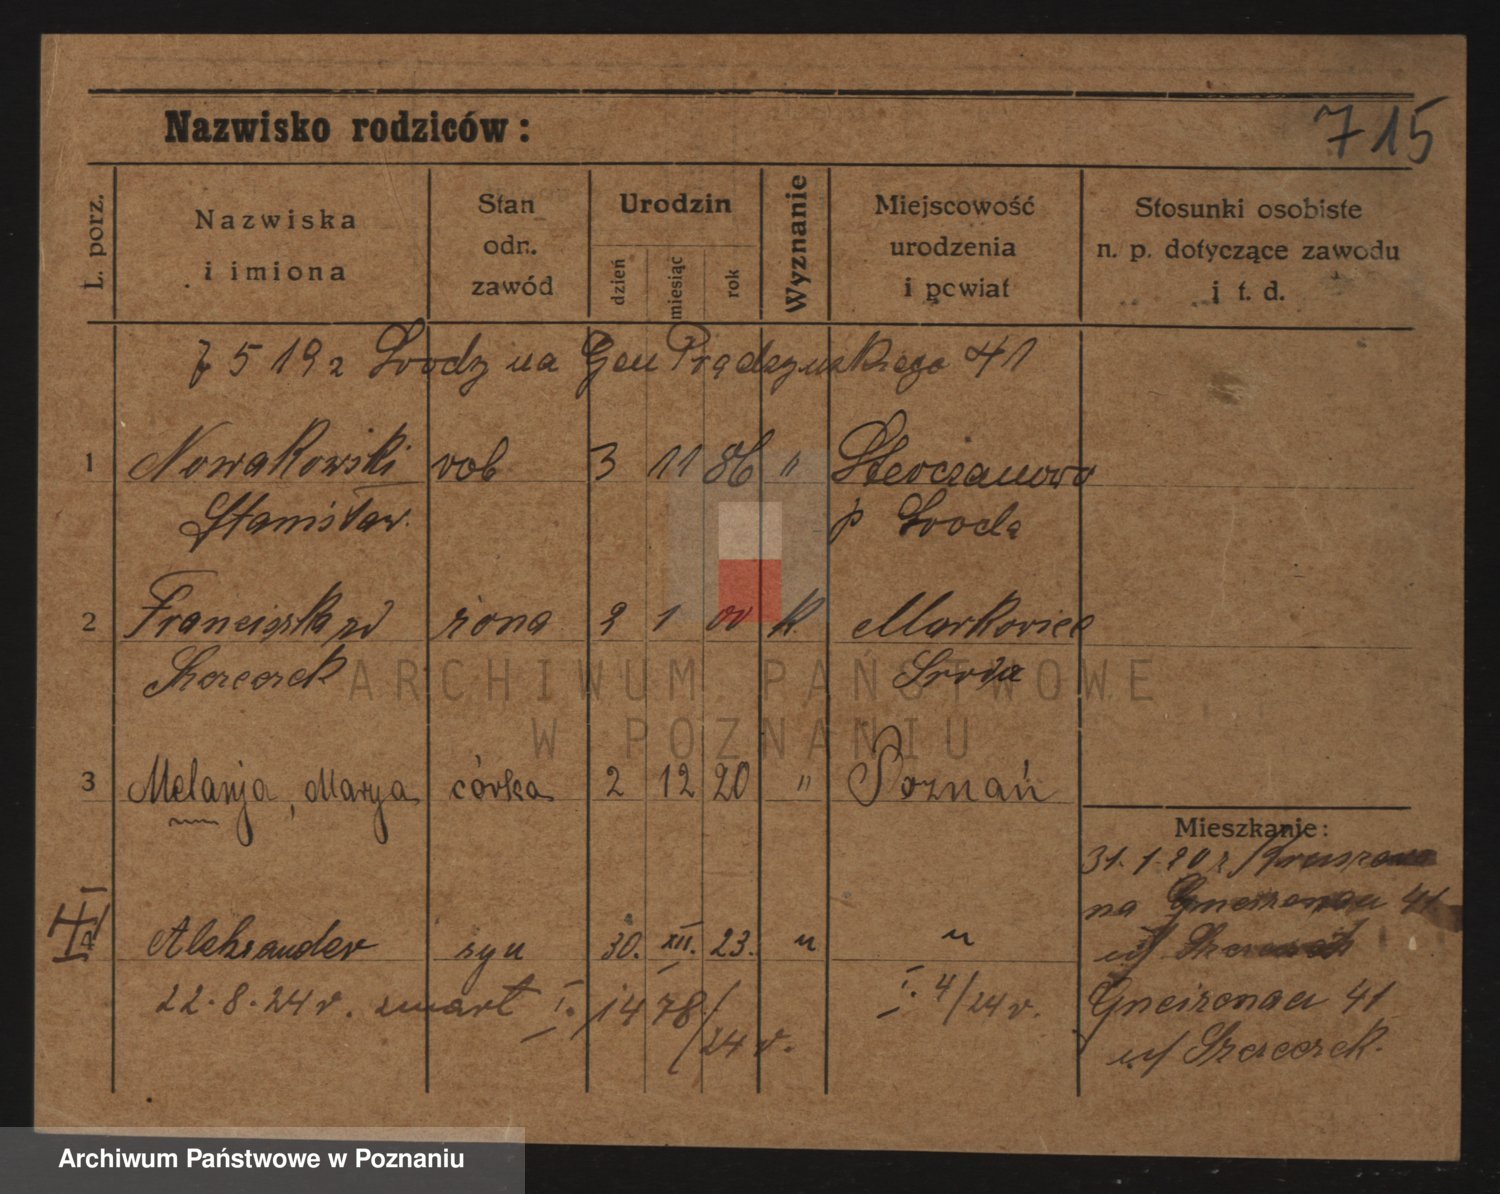 Nazwisko rodziców:
715
L. porz.
Nazwiska
i imiona
Stan
odn.
zawód
Urodzin
dzień
miesiąc
rok
Wyznanie
Miejscowość
urodzenia
i powiat
Stosunki osobiste
n. p. dotyczące zawodu
i t. d.
7 5 19 na Gen Prądzyńskiego 41
1 Nowakowski rob 3 11 86 "
Stanisław. p
2 Franciszka zd żona 2 1 00 k. Markowice
Szczerek
3 Melanja, Marya córka 2 12 20 " Poznań
Mieszkanie:
31.1.20 r
na Gneisenau 41
Aleksander syn 30. XII. 23. " "
22.8.24 r. zmarł I. 1478/24 r. I. 4/24 r.
Gneisenau 41
u/ Szczerek.
ARCHIWUM PAŃSTWOWE
W POZNANIU
Archiwum Państwowe w Poznaniu